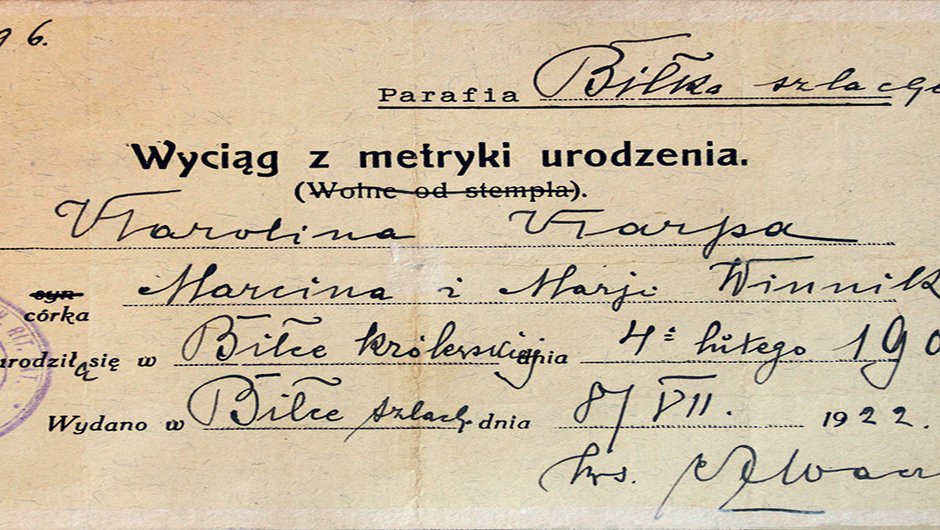 6.
Parafia Biłka szlach
Wyciąg z metryki urodzenia.
(Wolne od stempla).
Karolina Karpa
syn
córka Marcina i Marji Winnik
urodziłą się w Biłce królewskiej dnia 4 lutego 190
Wydano w Biłce szlach. dnia 8/VII. 1922.
ks.